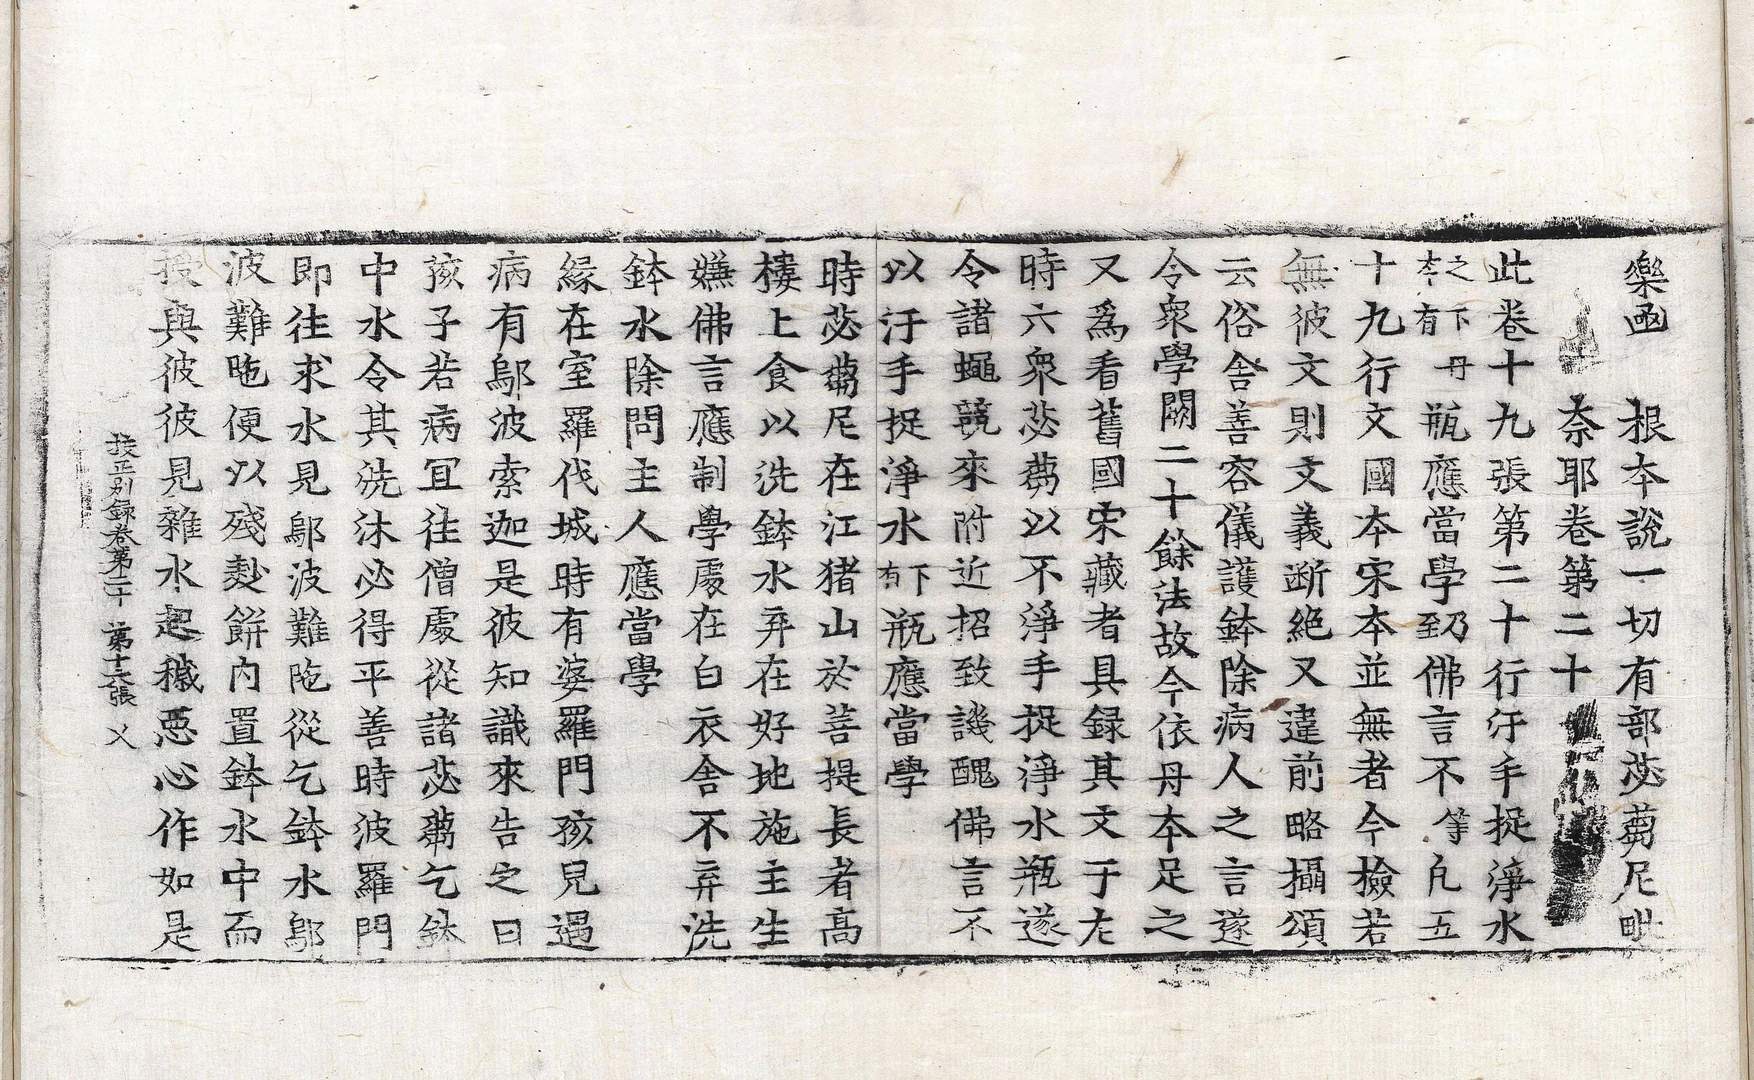 樂函　根本說一切有部苾蒭尼毗
奈耶卷第二十
此卷十九張第二十行汙手捉淨水
之下丹本有瓶應當學乃至佛言不等凡五
十九行文國本宋本並無者今檢若
無彼文則文義斷絶又違前略攝頌
云俗舍善容儀護鉢除病人之言遂
令衆學闕二十餘法故今依丹本足之
又爲看舊國宋藏者具録其文于左
時六衆苾蒭以不淨手捉淨水瓶遂
令諸蠅競來附近招致譏醜佛言不
以汙手捉淨水下有瓶應當學
時苾蒭尼在江猪山於菩提長者高
樓上食以洗鉢水弃在好地施主生
嫌佛言應制學處在白衣舍不弃洗
鉢水除問主人應當學
緣在室羅伐城時有婆羅門孩兒遇
病有鄔波索迦是彼知識來告之曰
孩子若病冝往僧處從諸苾蒭乞鉢
中水令其洗沐必得平善時波羅門
即往求水見鄔波難陁從乞鉢水鄔
波難陁便以殘麨餅内置鉢水中而
授與彼彼見雜水起穢惡心作如是
校正別録卷第二十　第十六張　乂